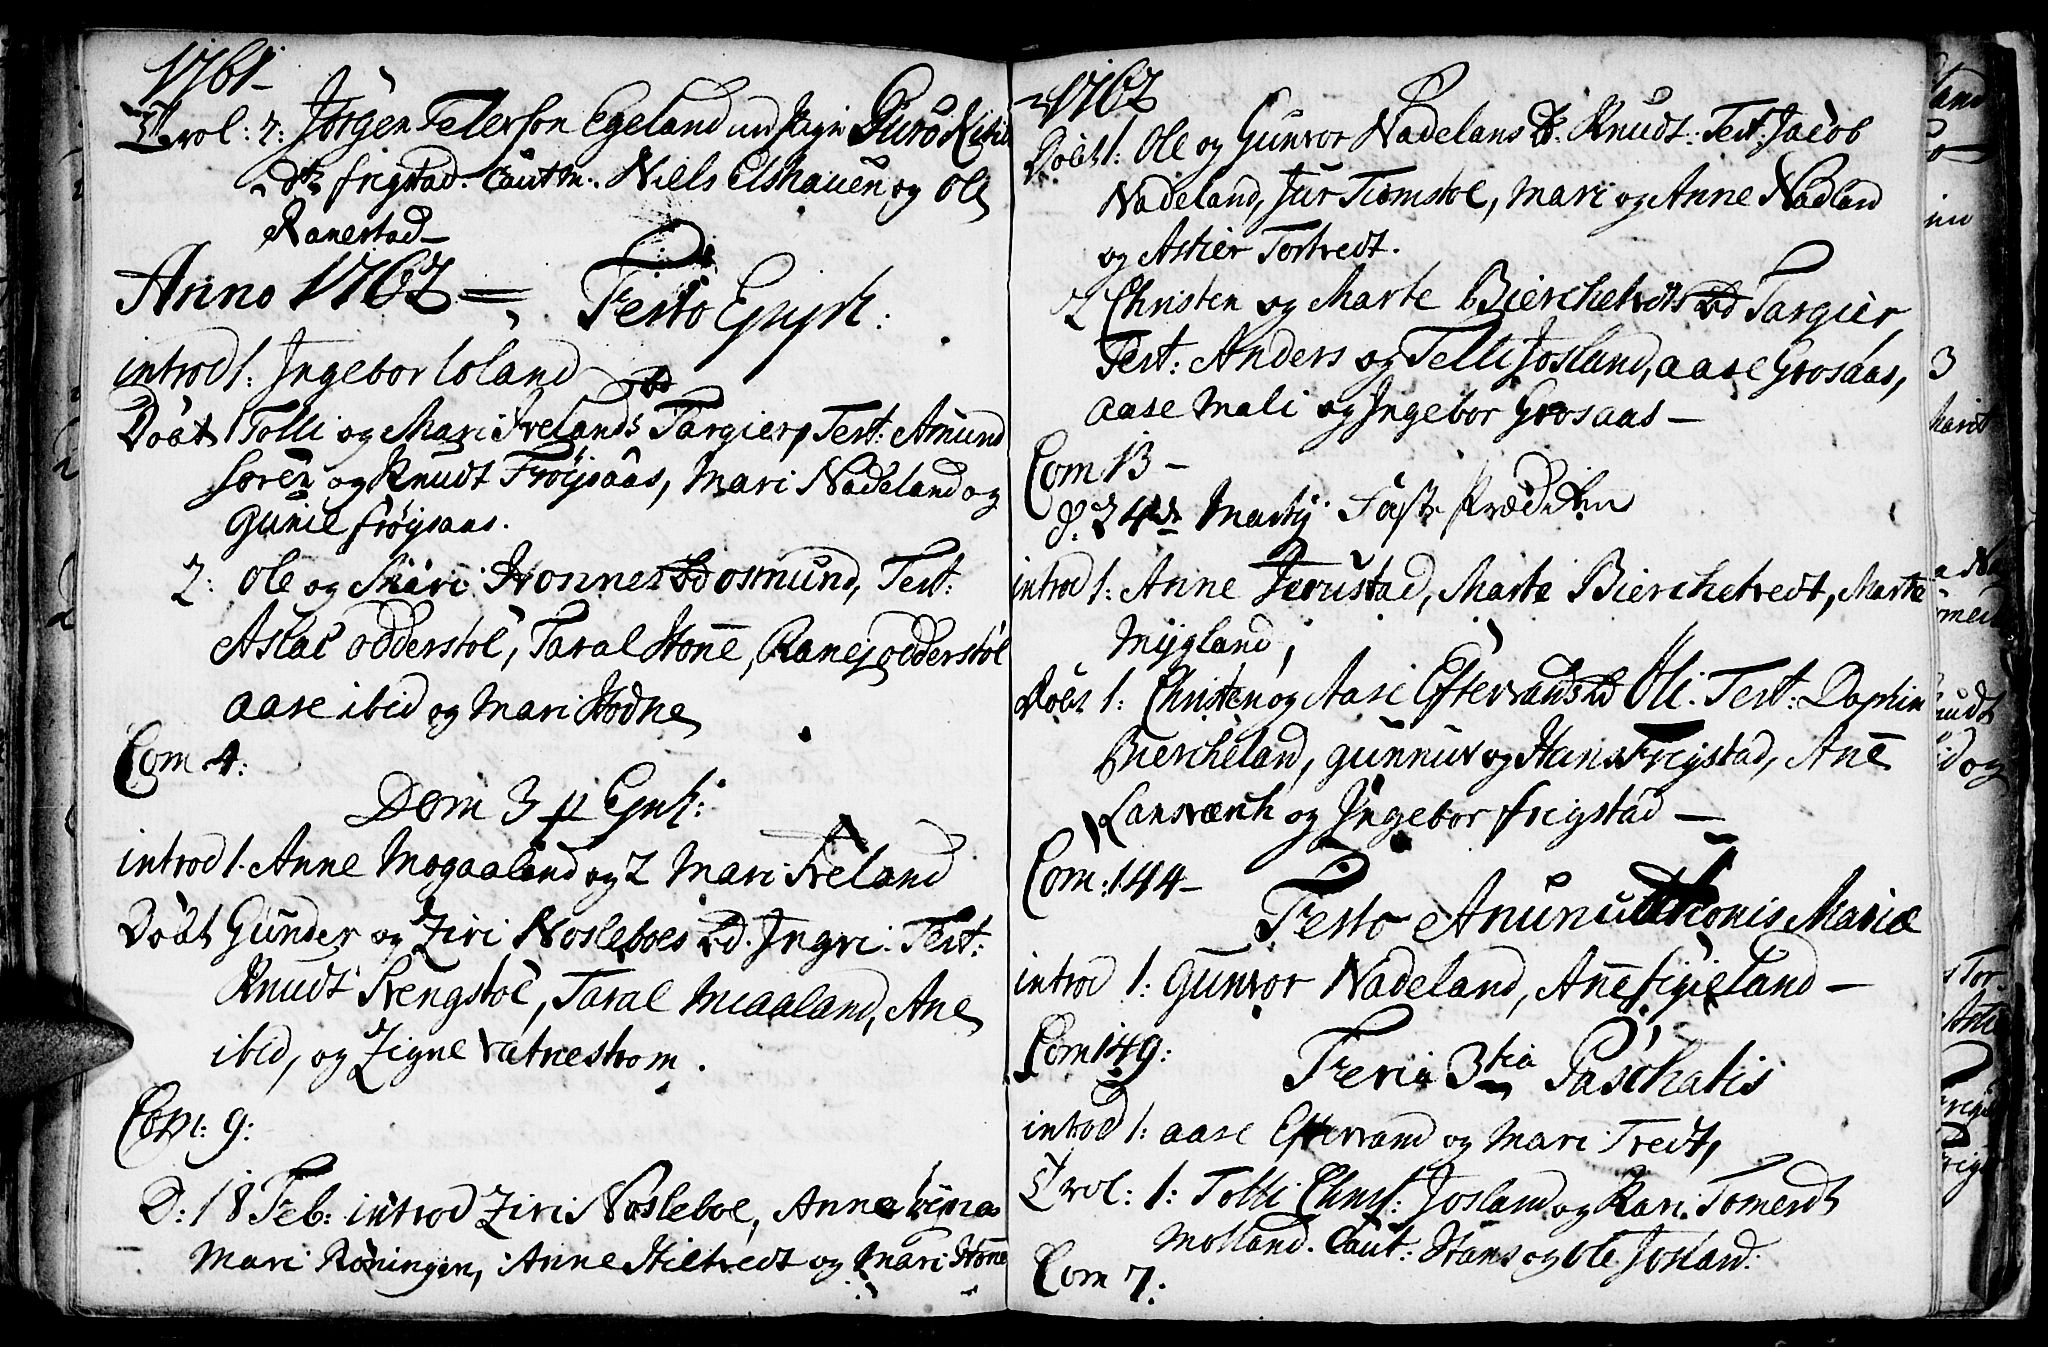 1761
Trol: 7: Jörgen Peterson Egeland und pige Guro Ketils
dtr frigstad. Caut m. Niels Elshauen og Ole
Ranestad
Anno 1762 Festo Epiph:
introd 1: Ingebor loland
Döbt 1 Tolli og Mari Ivelands Bd Targier, Test: Amund
Sören og Knudt Fröysaas, Mari Nadeland og
Gunil fröysaas.
2: Ole og Mari Honnes Bd osmund, Test:
Aslac odderstöl, Taral Honne, Ranej odderstöl
aase ibid og Mari Hodne
Com 4:
Dom 3 p Epiph:
introd 1. Anne Mogaaland og 2 Mari Iveland
Döbt Gunder og Ziri Nosleboes Bd. Ingri. Test:
Knudt Svengstöl, Taral Miaaland, Ane
ibid, og Zigne vatnestrom.
Com: 9:
D: 18 Feb: introd Ziri Nosleboe, Anne
Mari Röningen, Anne Hiltvedt og Mari Honne
1762
Döbt 1: Ole og Gunvor Nadelans B. Knudt: Test: Jacob
Nadeland, Jur Tiomstöl, Mari og Anne Nadland
og Astier Tortvedt.
2 Christen og Marte Bierchetvedts Bd Targier,
Test: Anders og Telli Josland, aase Grosaas,
aase Mali og Ingebor Grosaas
Com 13
D. 24de Martij Faste Prædiken
introd 1: Anne Jerustad, Marte Bierchetvedt, Marte
Mygland,
Döbt 1: Christen og Aase Eftevands Bd Oli. Test: Daphin
Biercheland, gunnuv og Hans Frigstad, Ane
Lansværch og Ingebor frigstad
Com: 144
Festo Anunutionis Mariæ
introd 1: Gunvor Nadeland, Ane figieland
Com 149:
Feria 3tia Paschatis
introd 1: aase Eftevand og Mari Tvedt,
Trol: 1: Tolli Christ: Josland og Kari Tomersdt
Molland. Caut: Hans og Ole Josland:
Com 7: